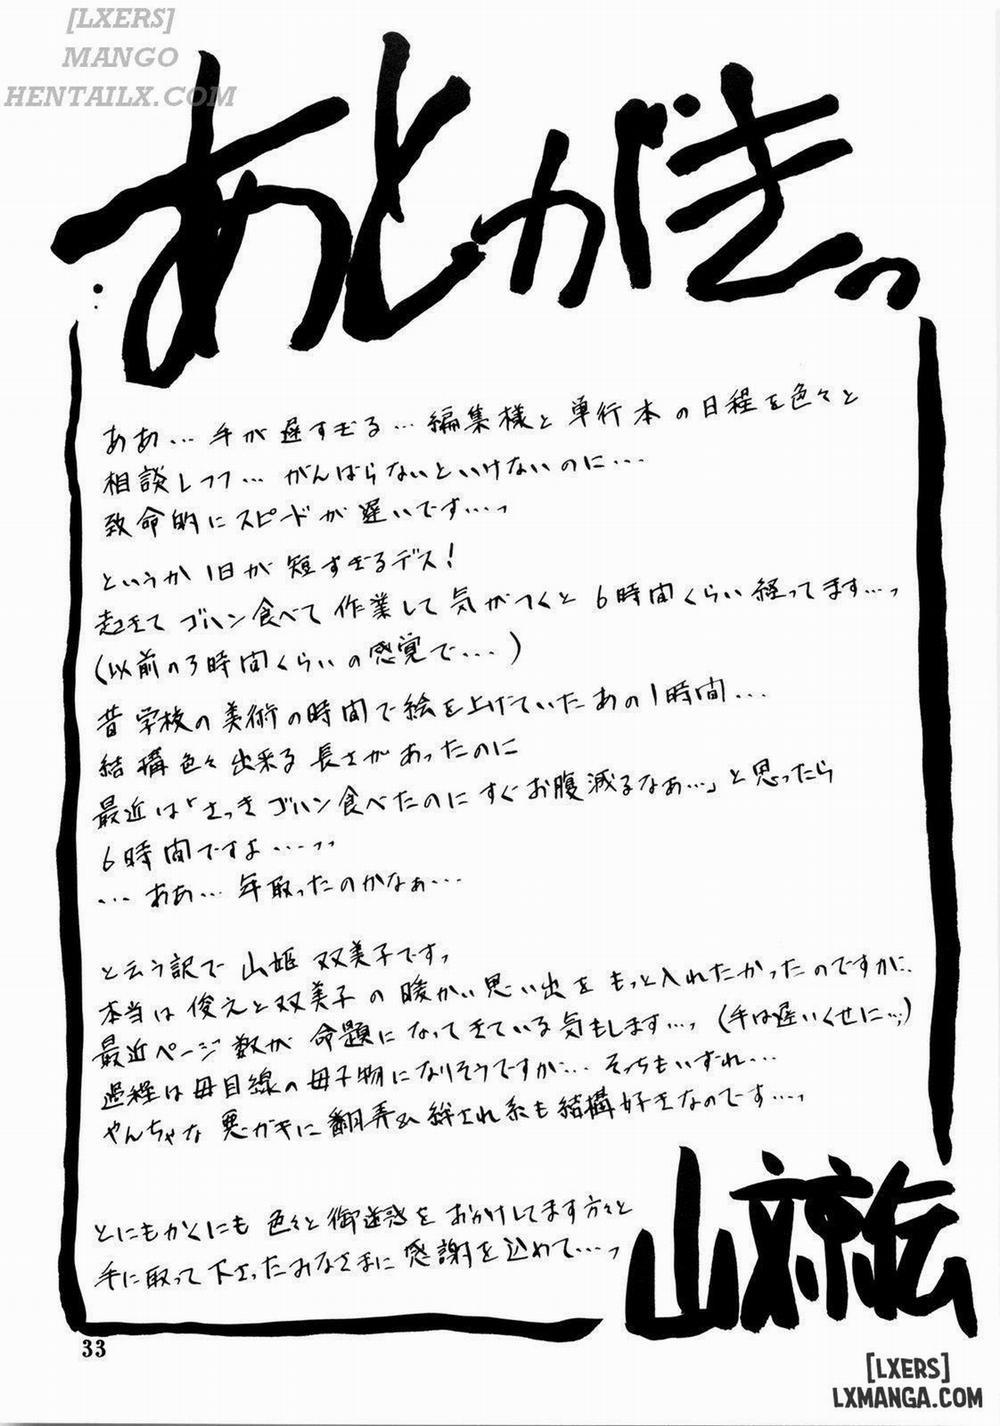 [LXERS]
MANGO
HENTAILX.COM
あとがきっ
ああ…手が遅すぎる…編集様と単行本の日程を色々と
相談しつつ…がんばらないといけないのに…
致命的にスピードが遅いです…っ
というか1日が短すぎるデス!
起きてゴハン食べて作業して気がつくと6時間くらい経ってます…っ
(以前の3時間くらいの感覚で…)
昔学校の美術の時間で絵を上げていたあの1時間…
結構色々出来る長さがあったのに
最近は「さっきゴハン食べたのにすぐお腹減るなぁ…」と思ったら
6時間ですよ…っっ
…ああ…年取ったのかなぁ…
と云う訳で山姫双美子ですっ
本当は俊之と双美子の暖かい思い出をもっと入れたかったのですが、
最近ページ数が命題になってきている気もします…っ(手は遅いくせに…)
過程は母目線の母子物になりそうですが…そっちもいずれ…
やんちゃな悪ガキに翻弄&絆され系も結構好きなのです…っ
とにもかくにも色々と御迷惑をおかけしてます方々と
手に取って下さったみなさまに感謝を込めて…っ
山文京伝
33
[LXERS]
LXMANGA.COM